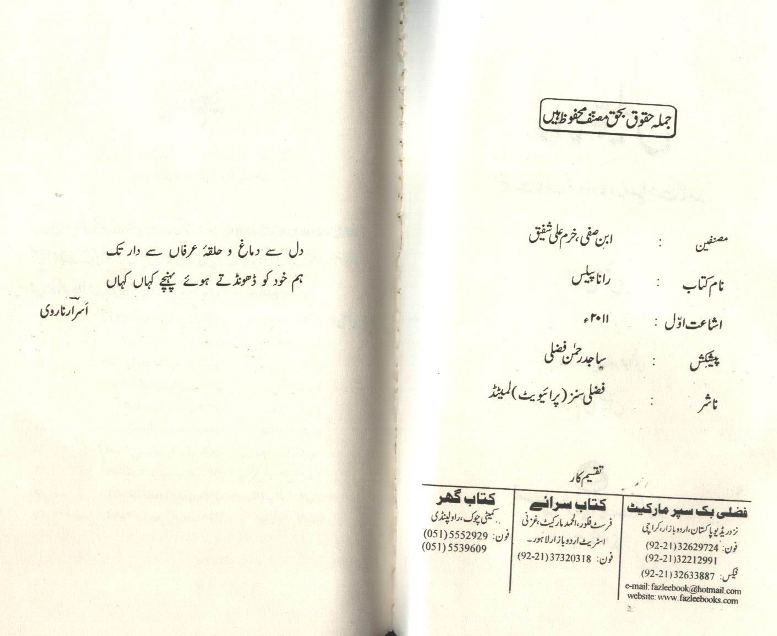 جملہ حقوق بحق مصنف محفوظ ہیں
مصنفین : ابن صفی، خرم علی شفیق
نام کتاب : رانا پیلس
اشاعت اوّل : ۲۰۱۱ء
پیشکش : ساجد رحمٰن فضلی
ناشر : فضلی سنز (پرائیویٹ) لمیٹڈ
تقسیم کار
فضلی بک سپر مارکیٹ
نزد ریڈیو پاکستان، اردو بازار، کراچی
فون: (92-21)32629724
(92-21)32212991
فیکس: (92-21)32633887
e-mail: fazleebook@hotmail.com
website: www.fazleebooks.com
کتاب سرائے
فرسٹ فلور، الحمد مارکیٹ، غزنی
اسٹریٹ اردو بازار لاہور۔
فون: (92-21)37320318
کتاب گھر
کمیٹی چوک، راولپنڈی
فون: (051) 5552929
(051) 5539609
دل سے دماغ و حلقۂ عرفاں سے دار تک
ہم خود کو ڈھونڈتے ہوئے پہنچے کہاں کہاں
اسرار ناروی